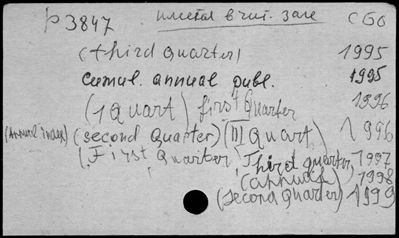 p 3847 имеїся в чит. зале СБО
(third quarter) 1995
cumul. annual publ. 1995
(1 Quart) first Quarter 1996
(Annual index) (second Quarter) (III Quart) 1996
(First Quarter, Third quarter, 1997
(annual) 1998
(second Quarter) 1999